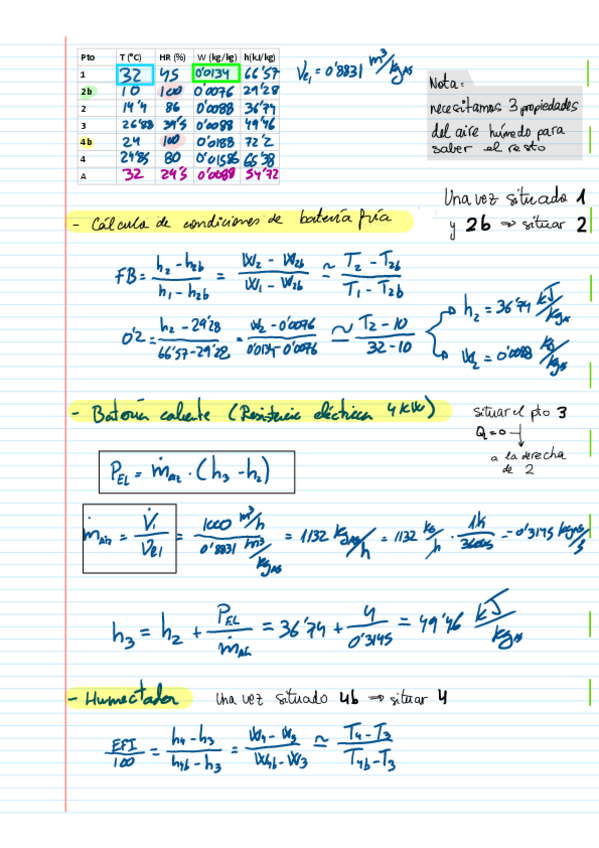 Pto T (°C) HR (%) W (kg/kg) h(kJ/kg)
1 32 45 0'0134 66'57
2b 10 100 0'0076 29'28
2 14'4 86 0'0088 36'74
3 26'88 39'5 0'0088 49'46
4b 24 100 0'0188 72'2
4 24'85 80 0'01586 65'38
A 32 29'5 0'0088 54'72
Ve1 = 0'8831 m³/kgAS
Nota:
necesitamos 3 propiedades
del aire húmedo para
saber el resto
Una vez situado 1
y 2b ⇒ situar 2
- Cálculo de condiciones de batería fría
FB = (h2 - h2b)/(h1 - h2b) = (W2 - W2b)/(W1 - W2b) ≃ (T2 - T2b)/(T1 - T2b)
0'2 = (h2 - 29'28)/(66'57 - 29'28) = (W2 - 0'0076)/(0'0134 - 0'0076) ≃ (T2 - 10)/(32 - 10)
h2 = 36'74 kJ/kgAS
W2 = 0'0088 kg/kgAS
- Batería caliente (Resistencia eléctrica 4 kW)
situar el pto 3
Q = 0
a la derecha
de 2
PEL = ṁAS · (h3 - h2)
ṁAS = V̇1/Ve1 = (1000 m³/h)/(0'8831 m³/kgAS) = 1132 kgAS/h = 1132 kg/h · 1h/3600s = 0'3145 kgAS/s
h3 = h2 + PEL/ṁAS = 36'74 + 4/0'3145 = 49'46 kJ/kgAS
- Humectador Una vez situado 4b ⇒ situar 4
EFI/100 = (h4 - h3)/(h4b - h3) = (W4 - W3)/(W4b - W3) ≃ (T4 - T3)/(T4b - T3)